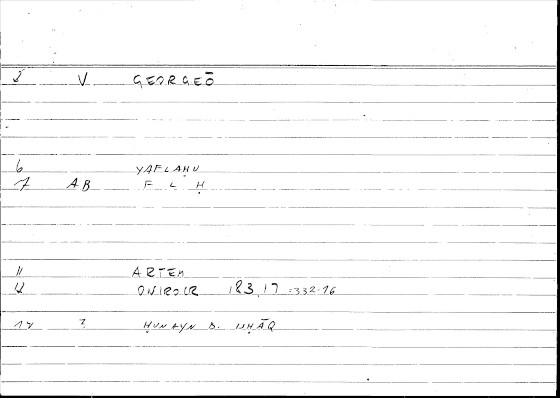 2 V GEORGEŌ
6 YAFLAḤU
7 AB F L Ḥ
11 ARTEM
12 ONIROCR 183,17 =332.16
14 2 ḤUNAYN B. ISḤĀQ